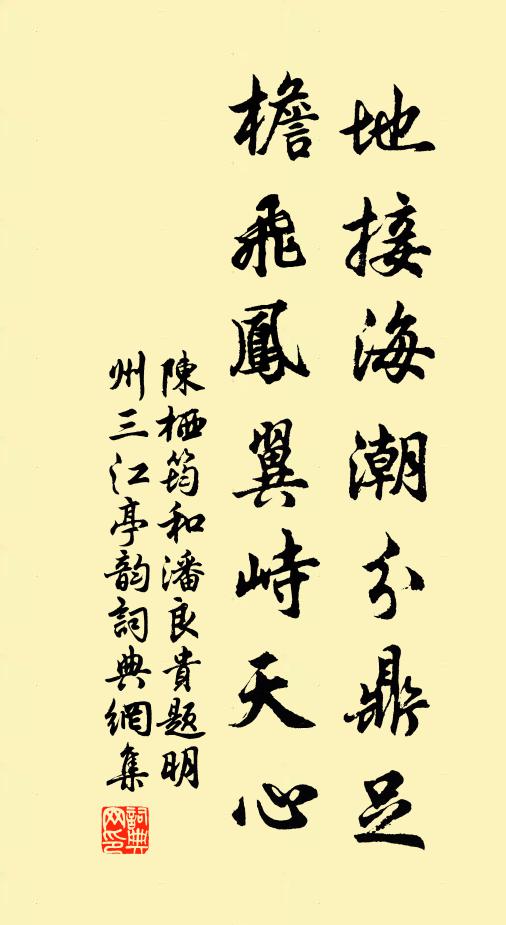 地接海潮分鼎足
檐飛鳳翼峙天心
陳栖筠和潘良貴題明
州三江亭韵詞典網集
詞典
网印